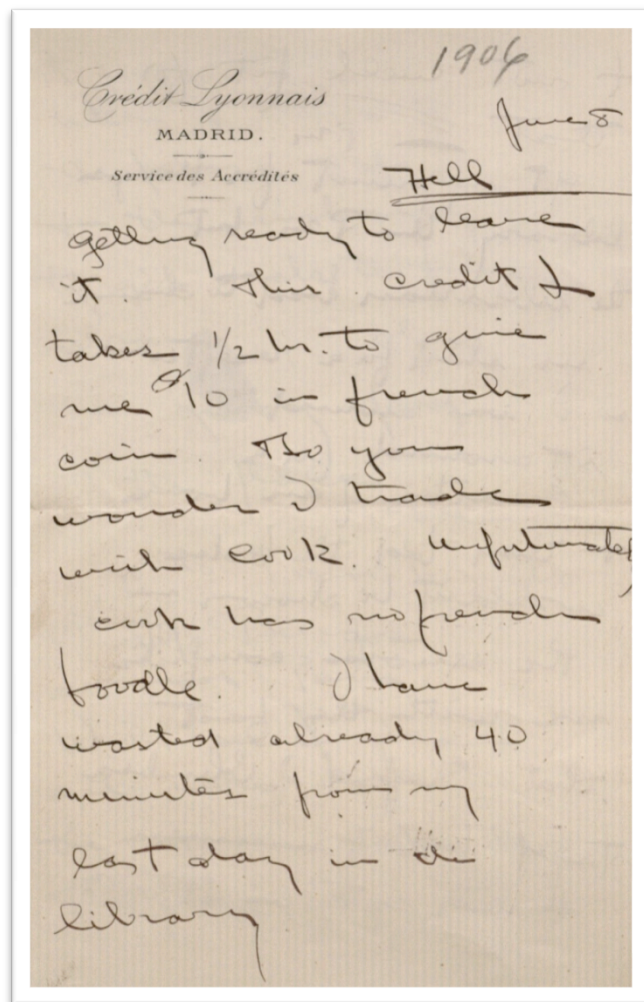 1906
Crédit Lyonnais
MADRID.
Service des Accrédités
June 8
Hell
getting ready to leave
it. This credit L
takes 1/2 hr. to give
me £10 in french
coin. Do you
wonder I trade
with Cook. Unfortunately
Cook has no french
boodle. I have
wasted already 40
minutes from my
last day in the
library